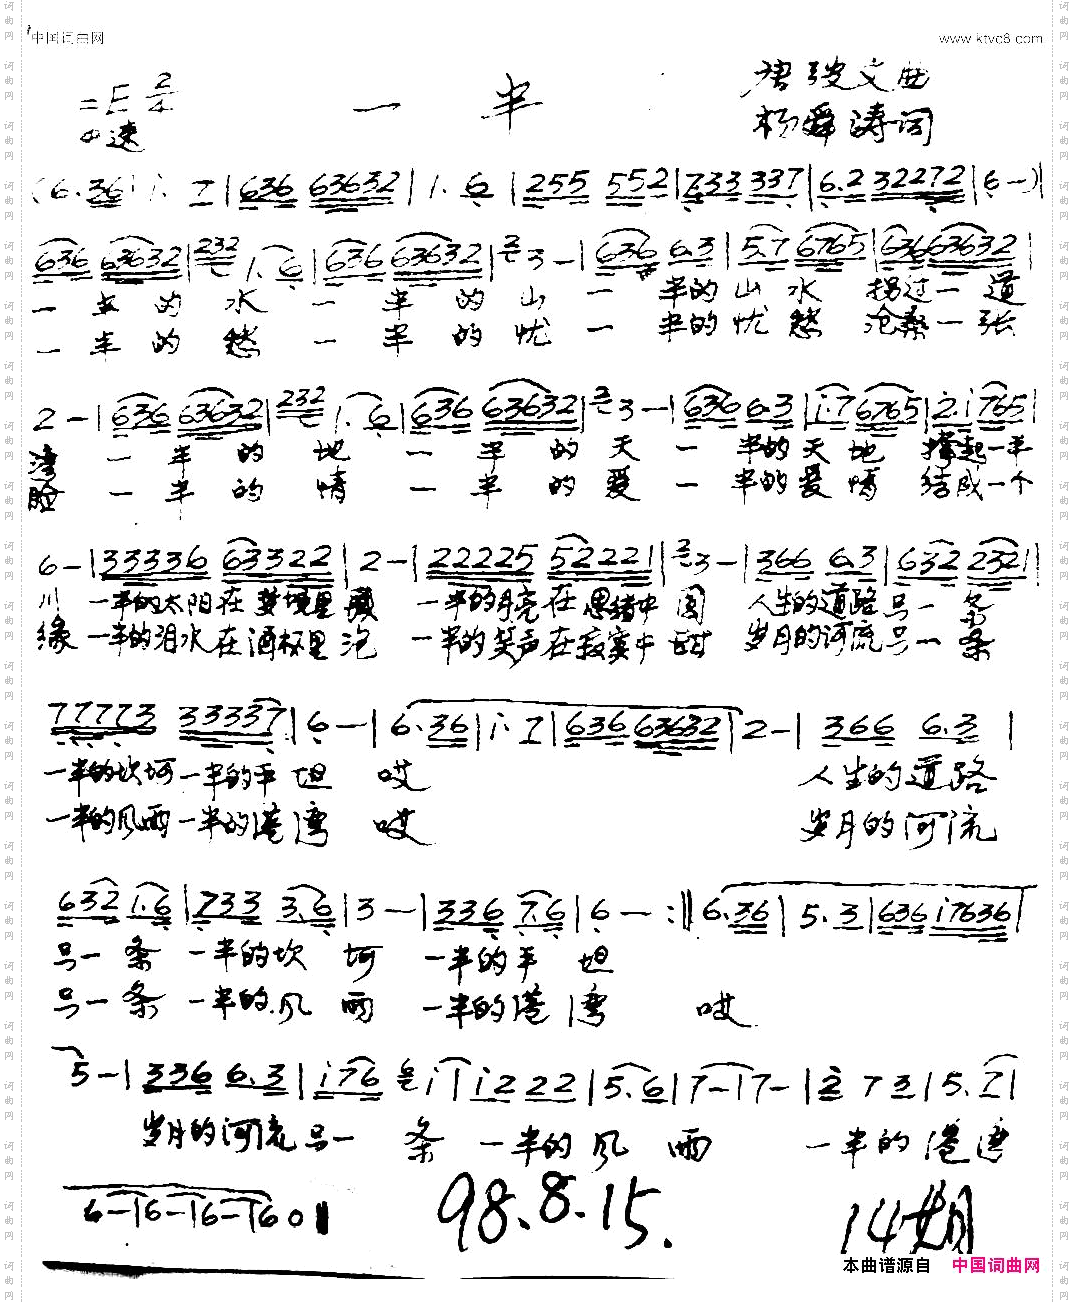 中国词曲网 www.ktvc8.com
=E 2/4
中速
一 半
文曲
杨舜涛词
(6.36 i. 7|636 63632|1. 6|255 552|733 337|6.2 32272|6 -)|
636 63632|232 1. 6|636 63632|3 -|636 6.3|5.7 6765|636 63632|
一 半 的 水 一 半 的 山 一 半的 山 水 拐过一 道
一 半 的 愁 一 半 的 忧 一 半的 忧 愁 沧桑一 张
2 -|636 63632|232 1. 6|636 63632|3 -|636 6.3|i.7 6765|2.i 765|
湾 一 半 的 地 一 半 的 天 一 半的 天 地 撑起一半
脸 一 半 的 情 一 半 的 爱 一 半的 爱 情 结成一个
6 -|33336 63322|2 -|22225 52221|3 -|366 6.3|632 2321|
川 一半的太阳在梦境里 一半的月亮在思绪中 圆 人生的道路只一条
缘 一半的泪水在酒杯里 泡 一半的笑声在寂寞中 甜 岁月的河流只一条
77773 33337|6 -|6.36|i. 7|636 63632|2 -|366 6.3|
一半的坎坷一半的平 坦 哎 人生的道路
一半的风雨一半的港湾 哎 岁月的河流
632 1.6|733 3.6|3 -|336 7.6|6 - :‖6.36|5. 3|636 i7636|
只一条 一半的坎 坷 一半的平 坦
只一条 一半的风 雨 一半的港 湾 哎
5 -|336 6.3|i76 i|i2 22|5. 6|7 -|7 -|2 7 3|5. 7|
岁月的河流只一 条 一半的风 雨 一半的港 湾
6 -|6 -|6 -|6 0‖
98.8.15.
14期
本曲谱源自 中国词曲网